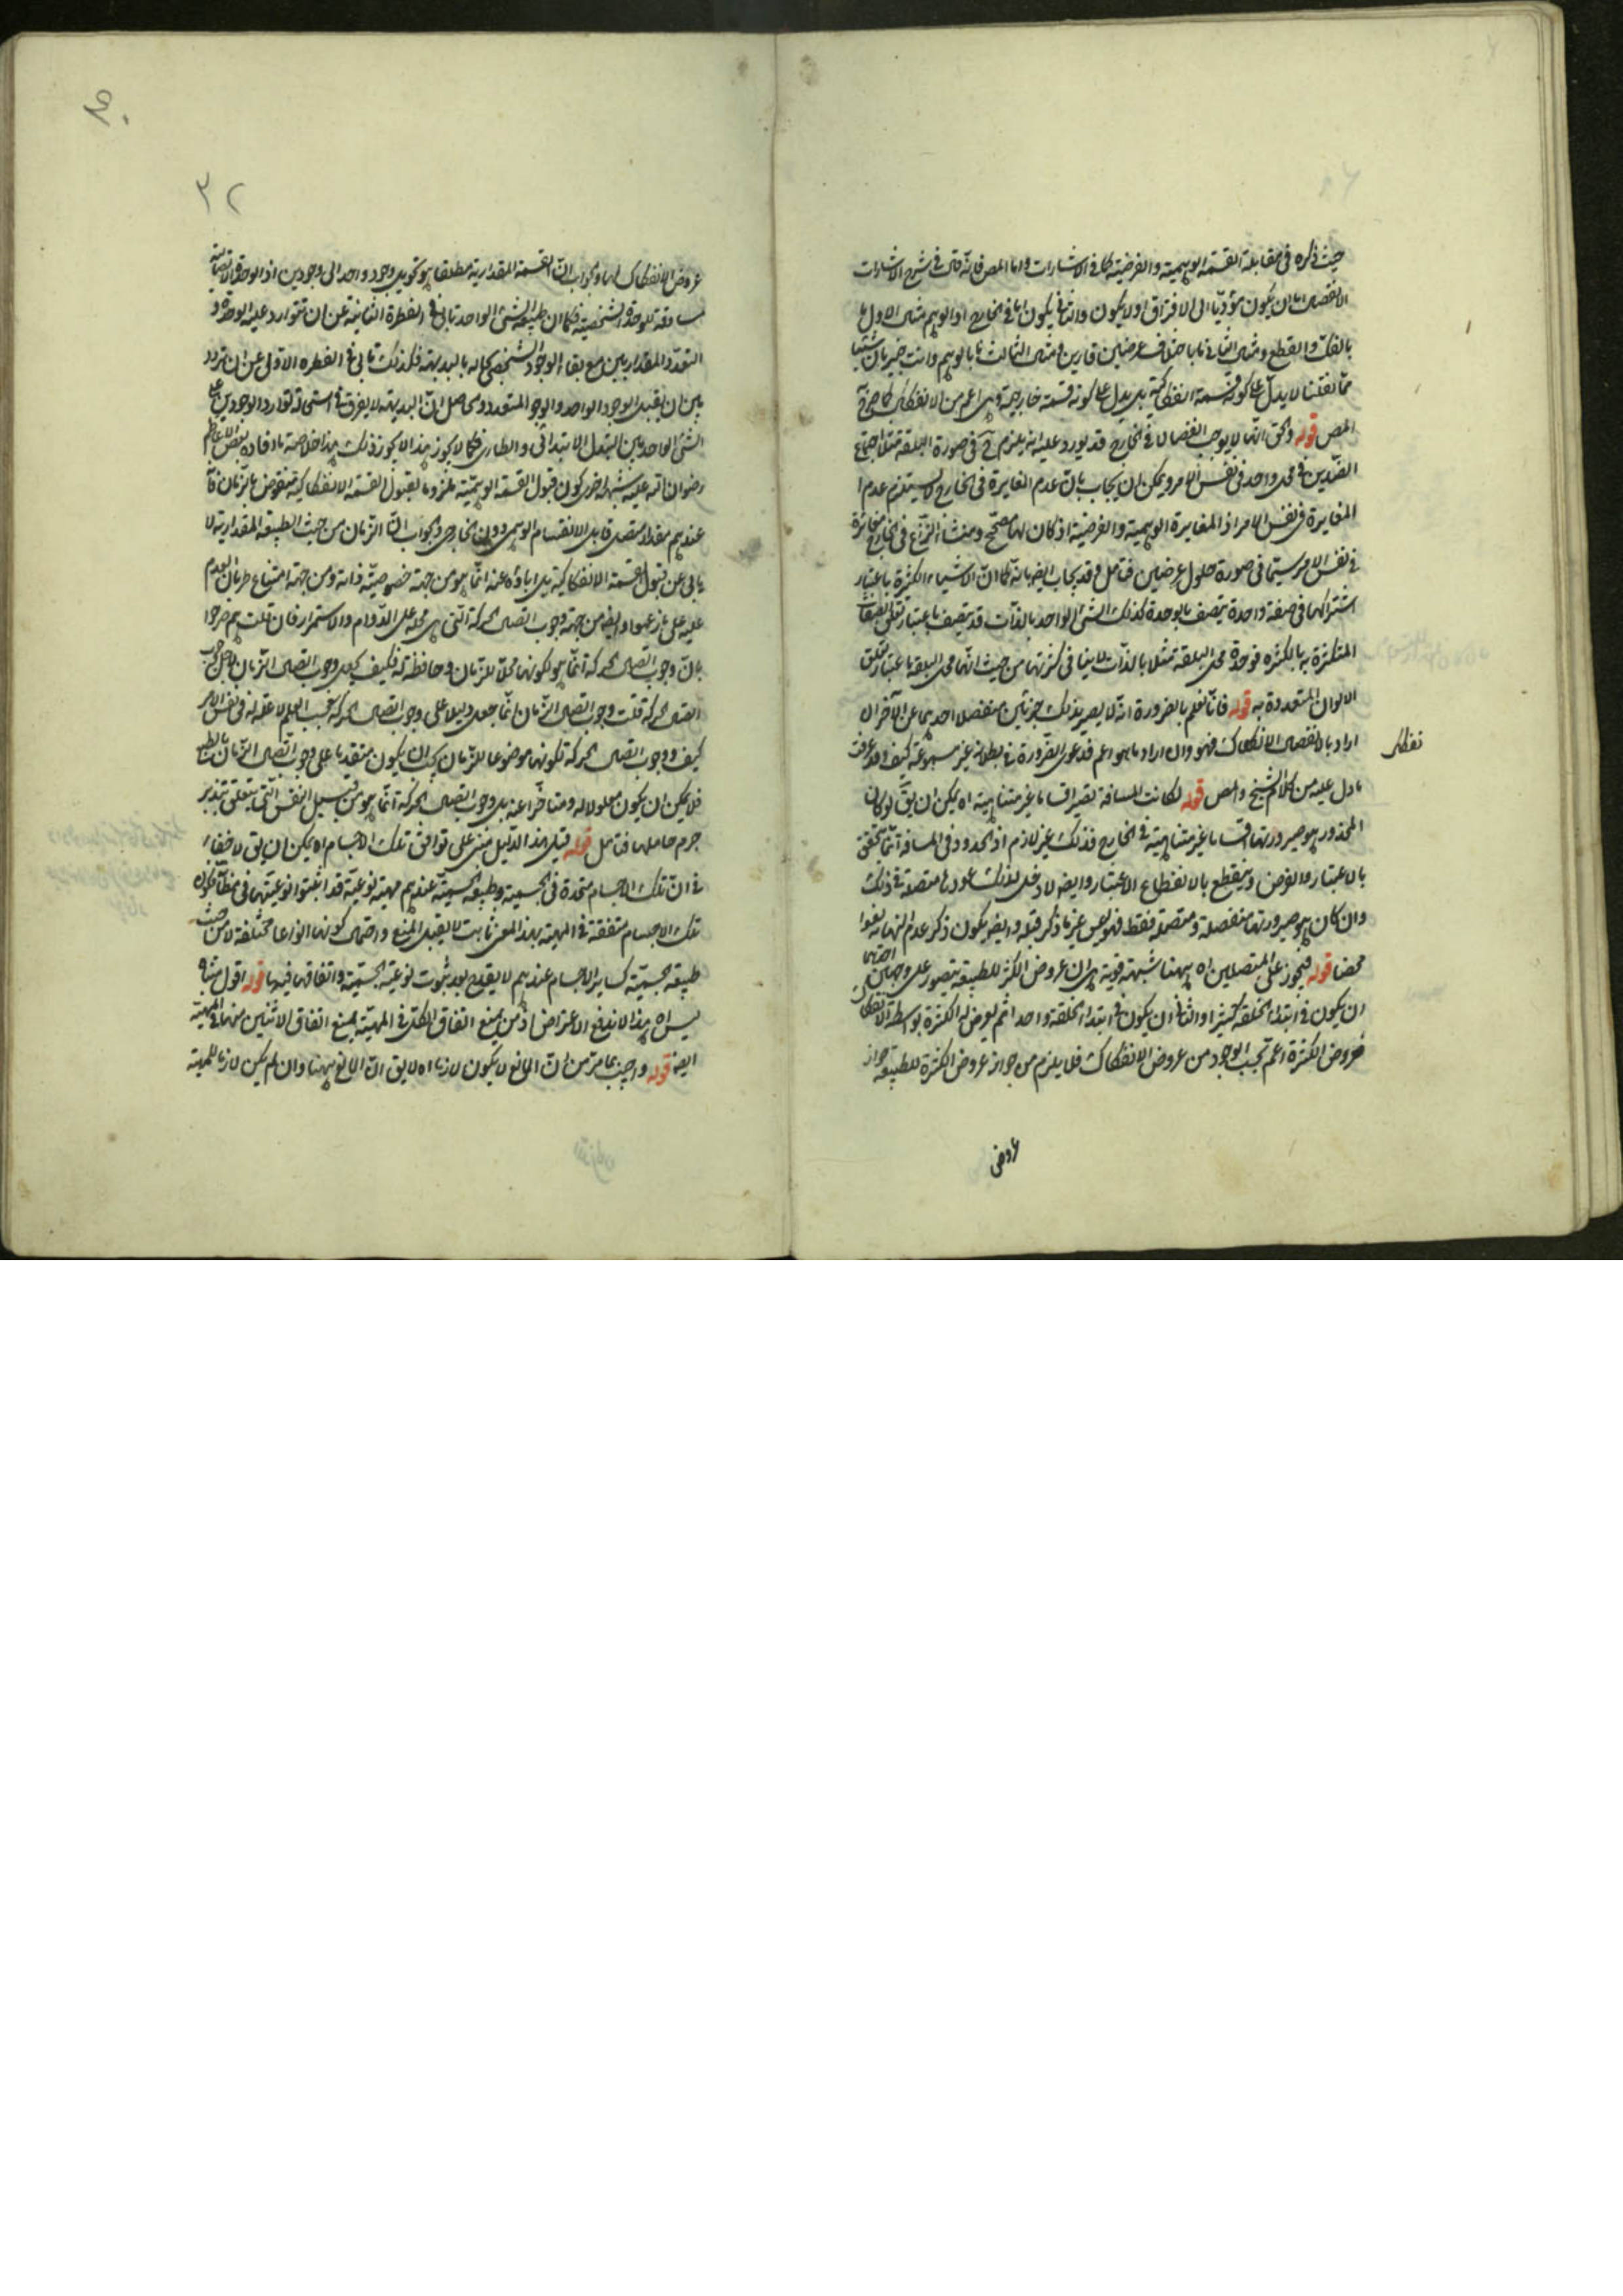 حيث ذكره فى مقابلة القسمة الوهمية والفرضية كما فى الاشارات واما المص فانه قال فى شرح الاشارات
الانفصال اما ان يكون مؤديا الى الافتراق اولا يكون والثانى يكون اما فى الخارج او الوهم مثال الاول ما
بالفك والقطع ومثال الثانى ما باختلاف عرضين قارين ومثال الثالث ما بالوهم وانت خبير بان شيئا
مما نقلنا لا يدل على كونه قسمة انفكاكية بل يدل على كونه قسمة خارجية وهى اعم من الانفكاك كما صرح
المص قوله والحق انها لا يوجب انفصالا فى الخارج قد يورد عليه انه يلزم ح فى صورة البلقة مثلا اجتماع
الضدين فى محل واحد فى نفس الامر ويمكن ان يجاب بان عدم المغايرة فى الخارج لا يستلزم عدم
المغايرة فى نفس الامر اذ المغايرة الوهمية والفرضية اذ كان لها مصحح ومنشاء انتزاع فى الخارج مغايرة
فى نفس الامر سيما فى صورة حلول عرضين فتامل وقد يجاب ايضا بانه كما ان الاشياء الكثيرة باعتبار
اشتراكها فى صفة واحدة يتصف بالوحدة كذلك الشئ الواحد بالذات قد يتصف باعتبار تعلق الصفات
المتكثرة به بالكثرة فوحدة محل البلقة مثلا بالذات لا ينافى كثرتها من حيث انها محل البلقة باعتبار تعلق
الالوان المتعددة به قوله فانا نعلم بالضرورة انه لا يصير بذلك جزئين منفصلا احدهما عن الآخر ان
اراد بالانفصال الانفكاك فهو وان اراد ما هو اعم فدعوى الضرورة فى بطلانه غير مسموعة كيف وقد عرفت
ما دل عليه من كلام الشيخ والمص قوله لكانت المسافة تصير اقساما غير متناهية اه يمكن ان يق لو كان
المحذور هو صيرورتها اقساما غير متناهية فى الخارج فذلك غير لازم اذ الحدود فى المسافة انما يتحقق
بالاعتبار والفرض وينقطع بالانقطاع الاعتبار وايضا لا دخل لذلك عودها متصلة فى ذلك
وان كان هو صيرورتها منفصلة ومتصلة فقط فهو ليس غير ما ذكر قبله وايضا يكون ذكر عدم النهاية لغوا
محضا قوله فيجوز على المتصلين اه ههنا شبهة قوية هى ان عروض الكثرة للطبيعة يتصور على وجهين احدهما
ان يكون فى ابتداء الخلقة كثيرا والثانى ان يكون فى ابتداء الخلقة واحدا ثم يعرض له الكثرة بواسطة الانفكاك
فعروض الكثرة اعم بحسب الوجود من عروض الانفكاك فلا يلزم من جواز عروض الكثرة للطبيعة جواز
عروض
عروض الانفكاك لها والجواب ان القسمة المقدارية مطلقا هو تحويل وجود واحد الى وجودين اذ الوحدة الاتصالية
مساوقة للوحدة الشخصية فكما ان طبيعة الشئ الواحد تابى فى الفطرة الثانية عن ان تتوارد عليه الوحدة و
التعدد المقداريين مع بقاء الوجود الشخصى بحاله بالبديهة فكذلك تابى فى الفطرة الاولى عن ان تردد
بين ان يقبل الوجود الواحد والوجود المتعدد والحاصل ان البديهة لا يفرق فى استحالة توارد الوجودين على
الشئ الواحد بين التبدل الابتدائى والطارى فكما لا يجوز هذا لا يجوز ذلك هذا خلاصة ما افاده بعض الاعاظم
رضوان الله عليه شبهة اخرى كون قبول القسمة الوهمية ملزوما لقبول القسمة الانفكاكية منقوض بالزمان فان
عندهم مقدار متصل قابل الانقسام الوهمى دون الخارجى والجواب ان الزمان من حيث الطبيعة المقدارية لا
يابى عن قبول القسمة الانفكاكية بل اباؤه عنه انما هو من جهة خصوصية ذاته ومن جهة امتناع طريان العدم
عليه على ما زعموا وايضا من جهة وجوب اتصال الحركة التى هى محله على الدوام والاستمرار فان قلت هم صرحوا
بان وجوب اتصال الحركة انما هو لكونها محلا للزمان وحافظة له فكيف يجعل وجوب اتصال الزمان
اتصال الحركة قلت وجوب اتصال الزمان انما جعل دليلا على وجوب اتصال الحركة بحسب العلم لا علة له فى نفس الامر
كيف ووجوب اتصال الحركة لكونها موضوعا للزمان يجب ان يكون متقدما على وجوب اتصال الزمان بالطبع
فلا يمكن ان يكون معلولا له ومتاخرا عنه بل وجوب اتصال الحركة انما هو من قبيل النفس التى يتعلق بتدبير
جرم حاملها فتامل قوله قيل هذا الدليل مبنى على توافق تلك الاجسام اه يمكن ان يق لا خفاء
فى ان تلك الاجسام متحدة فى الجسمية وطبيعة الجسمية عندهم مهية نوعية قد اثبتوا نوعيتها فى مظانه فكون
تلك الاجسام متفقة فى المهية بهذا المعنى ثابت لا يقبل المنع واحتمال كونها انواعا مختلفة لا من حيث
طبيعة الجسمية كساير الاجسام عندهم لا يقدح بعد ثبوت نوعية الجسمية واتفاقها فيها قوله اقول مشابه
ليس اه بهذا لا يندفع الاعتراض اذ من يمنع اتفاق الكل فى المهية يمنع اتفاق الاثنين منها فى المهية
ايضا قوله واجيب بما مر من ان المانع لا يكون لازما اه لا يق ان المانع ههنا وان لم يكن لازما للمهية